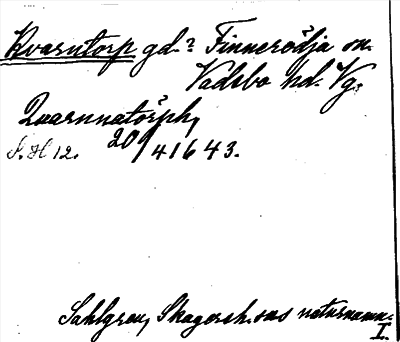 Kvarntorp gd.? Finnerödja sn.
Vadsbo hd. Vg.
Quarnnatörph,
S. H 12. 20/4 1643.
Sahlgren, Skagersh.sns naturnamn.
I.